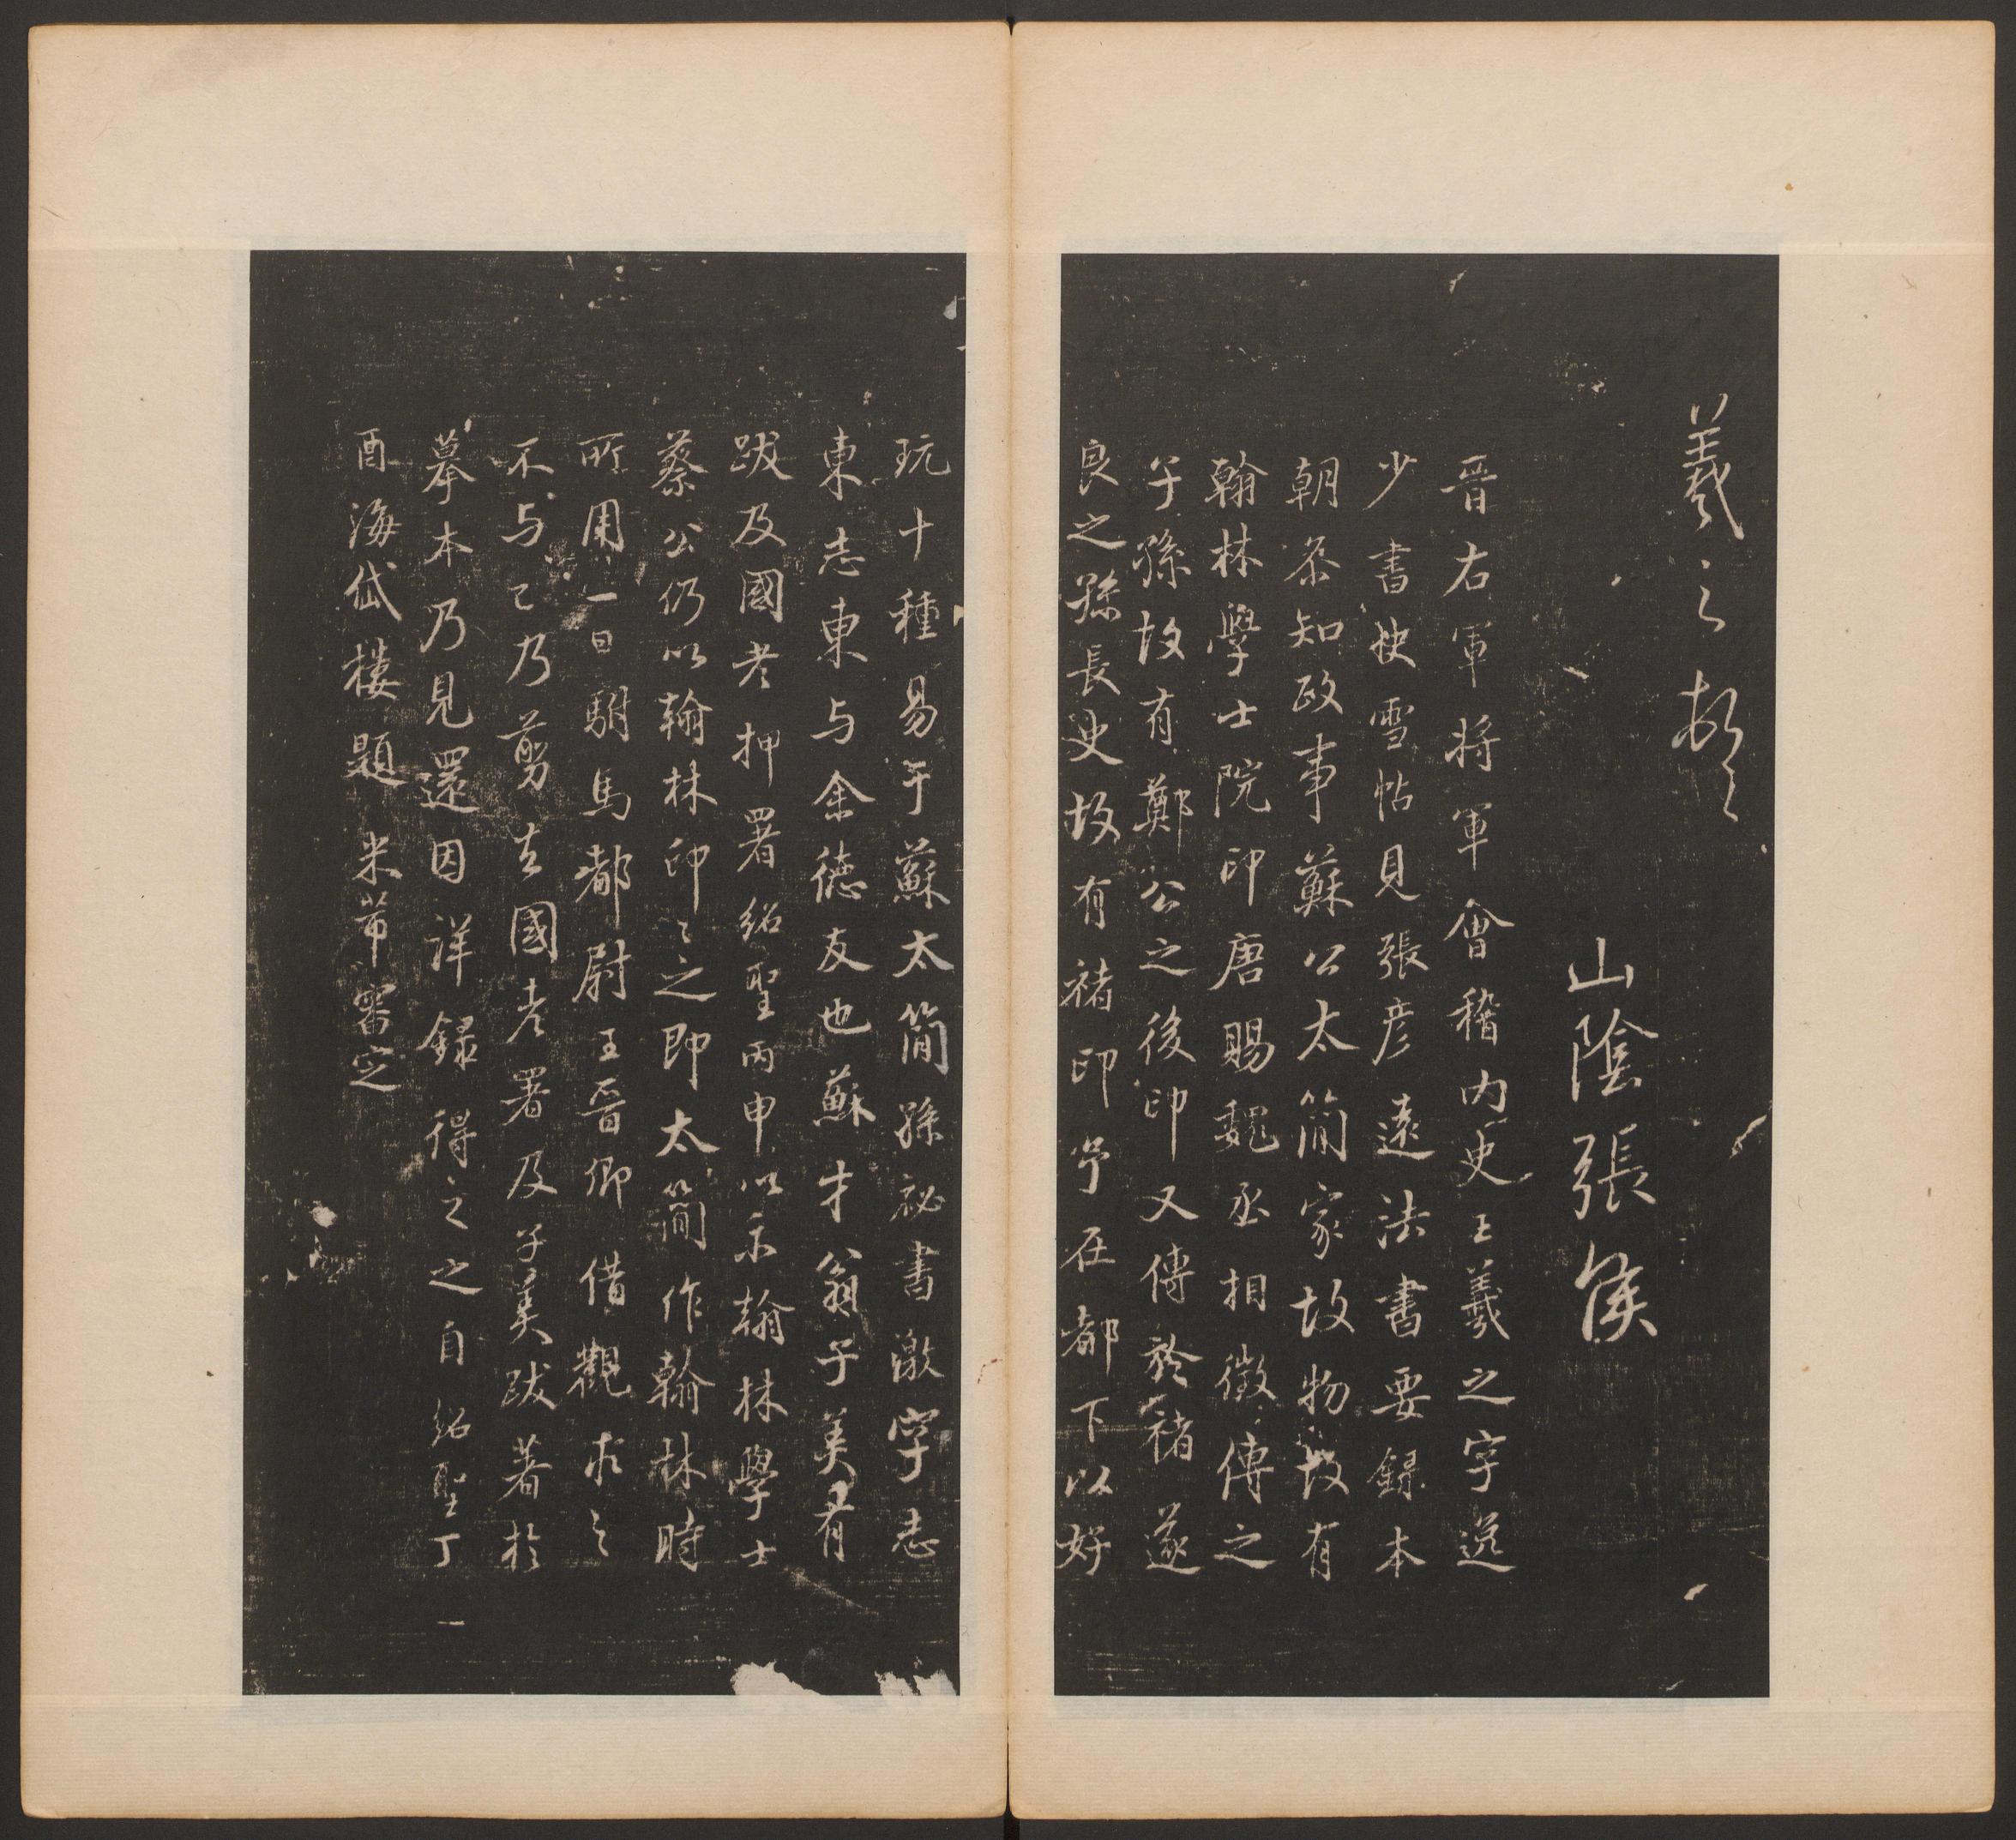 羲之頓首
山陰張侯
晉右軍將軍會稽內史王羲之字逸
少書快雪帖見張彥遠法書要錄本
朝叅知政事蘇公太簡家故物故有
翰林學士院印唐賜魏丞相徵傳之
子孫故有鄭公之後印又傳於褚遂
良之孫長史故有褚印予在都下以好
玩十種易于蘇太簡孫祕書激字志
東志東与余德友也蘇才翁子美有
跋及國老押署紹聖丙申以示翰林學士
蔡公仍以翰林印印之即太簡作翰林時
所用一日駙馬都尉王晉卿借觀求之
不与已乃剪去國老署及子美跋著於
摹本乃見還因詳錄得之之自紹聖丁
酉海岱樓題米芾審定